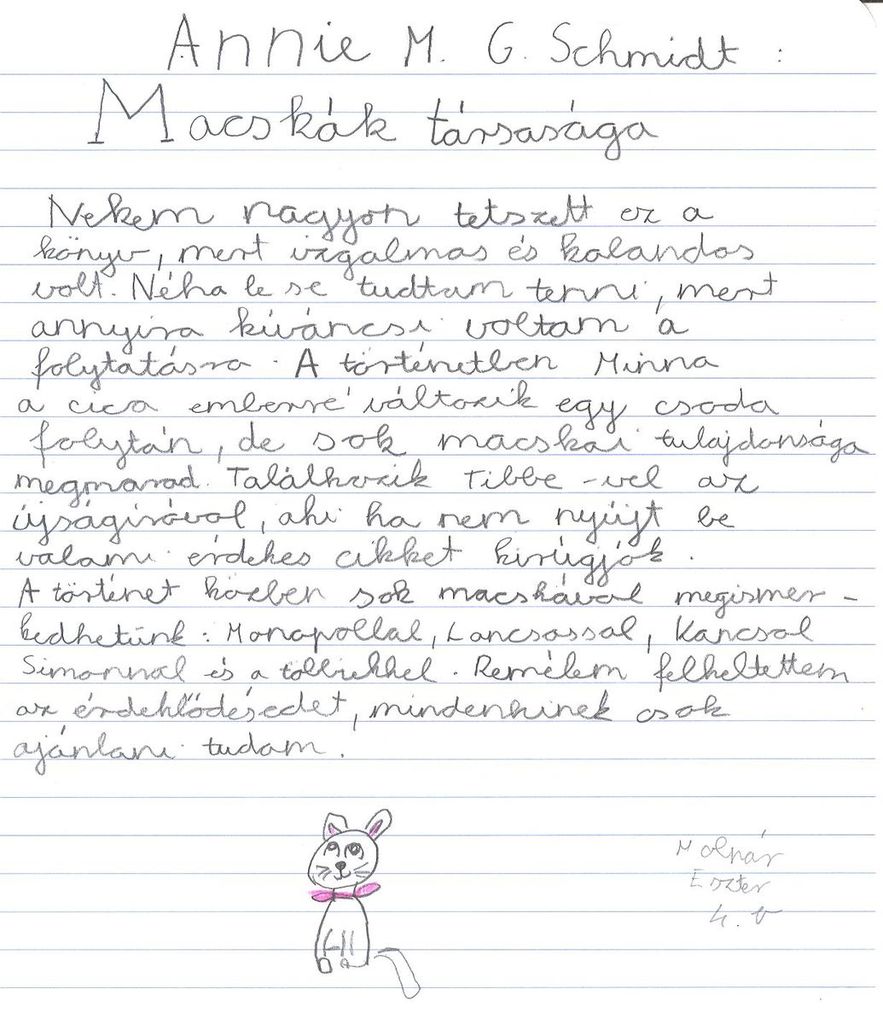 Annie M. G. Schmidt :
Macskák társasága
Nekem nagyon tetszett ez a
könyv, mert izgalmas és kalandos
volt. Néha le se tudtam tenni, mert
annyira kíváncsi voltam a
folytatásra. A történetben Minna
a cica emberré változik egy csoda
folytán, de sok macskai tulajdonsága
megmarad. Találkozik Tibbe-vel az
újságíróval, aki ha nem nyújt be
valami érdekes cikket kirúgják.
A történet közben sok macskával megismer-
kedhetünk: Monopollal, Loncsossal, Kancsal
Simonnal és a többiekkel. Remélem felkeltettem
az érdeklődésedet, mindenkinek csak
ajánlani tudom.
Molnár
Eszter
4. b